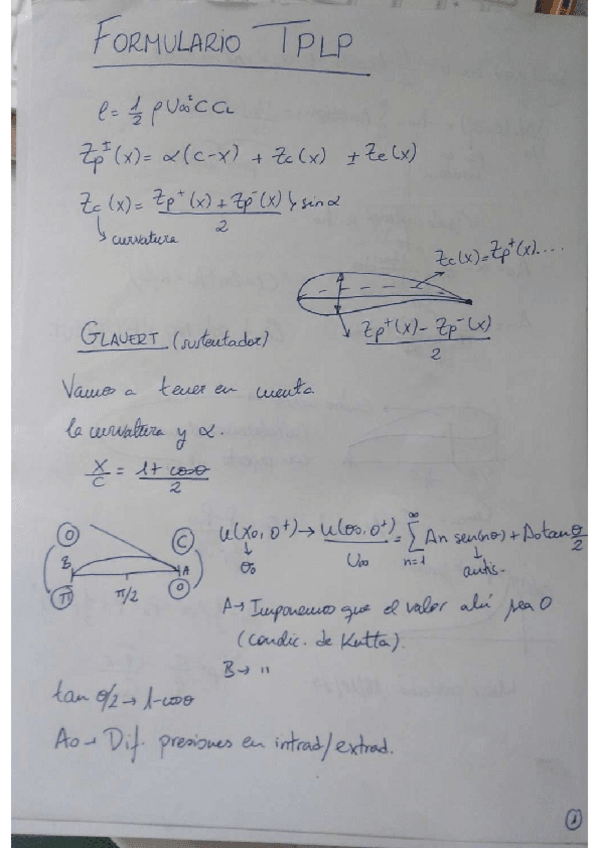 FORMULARIO TPLP
ℓ = 1/2 ρ U∞² C CL
Zp±(x) = α(c-x) + Zc(x) ± Ze(x)
Zc(x) = (Zp+(x) + Zp-(x))/2 sin α
↳ curvatura
Zc(x) = Zp+(x)....
(Zp+(x) - Zp-(x))/2
GLAUERT (sustentador)
Vamos a tener en cuenta
la curvatura y α.
x/c = (1 + cos θ)/2
u(x0, 0+) → u(θ0, 0+)/U∞ = Σ n=1 ∞ An sen(nθ) + A0 tan θ/2
θ0
antis.
0 C
B A
π π/2 0
A → Imponemos que el valor ahí sea 0
(condic. de Kutta).
B → "
tan θ/2 → 1-cos θ
A0 → Dif. presiones en intrad/extrad.
1